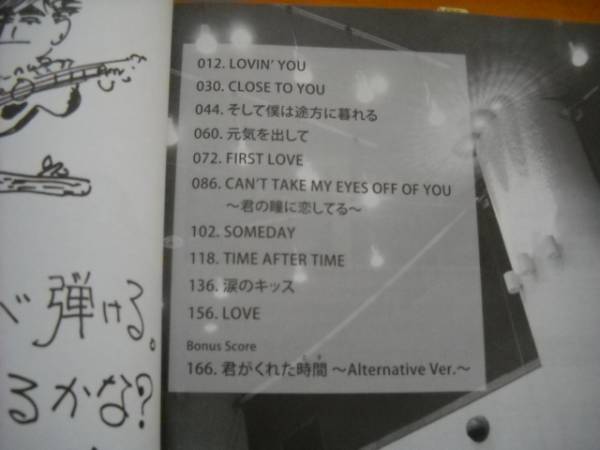 012. LOVIN' YOU
030. CLOSE TO YOU
044. そして僕は途方に暮れる
060. 元気を出して
072. FIRST LOVE
086. CAN'T TAKE MY EYES OFF OF YOU
〜君の瞳に恋してる〜
102. SOMEDAY
118. TIME AFTER TIME
136. 涙のキッス
156. LOVE
Bonus Score
166. 君がくれた時間 〜Alternative Ver.〜
弾ける。
るかな?